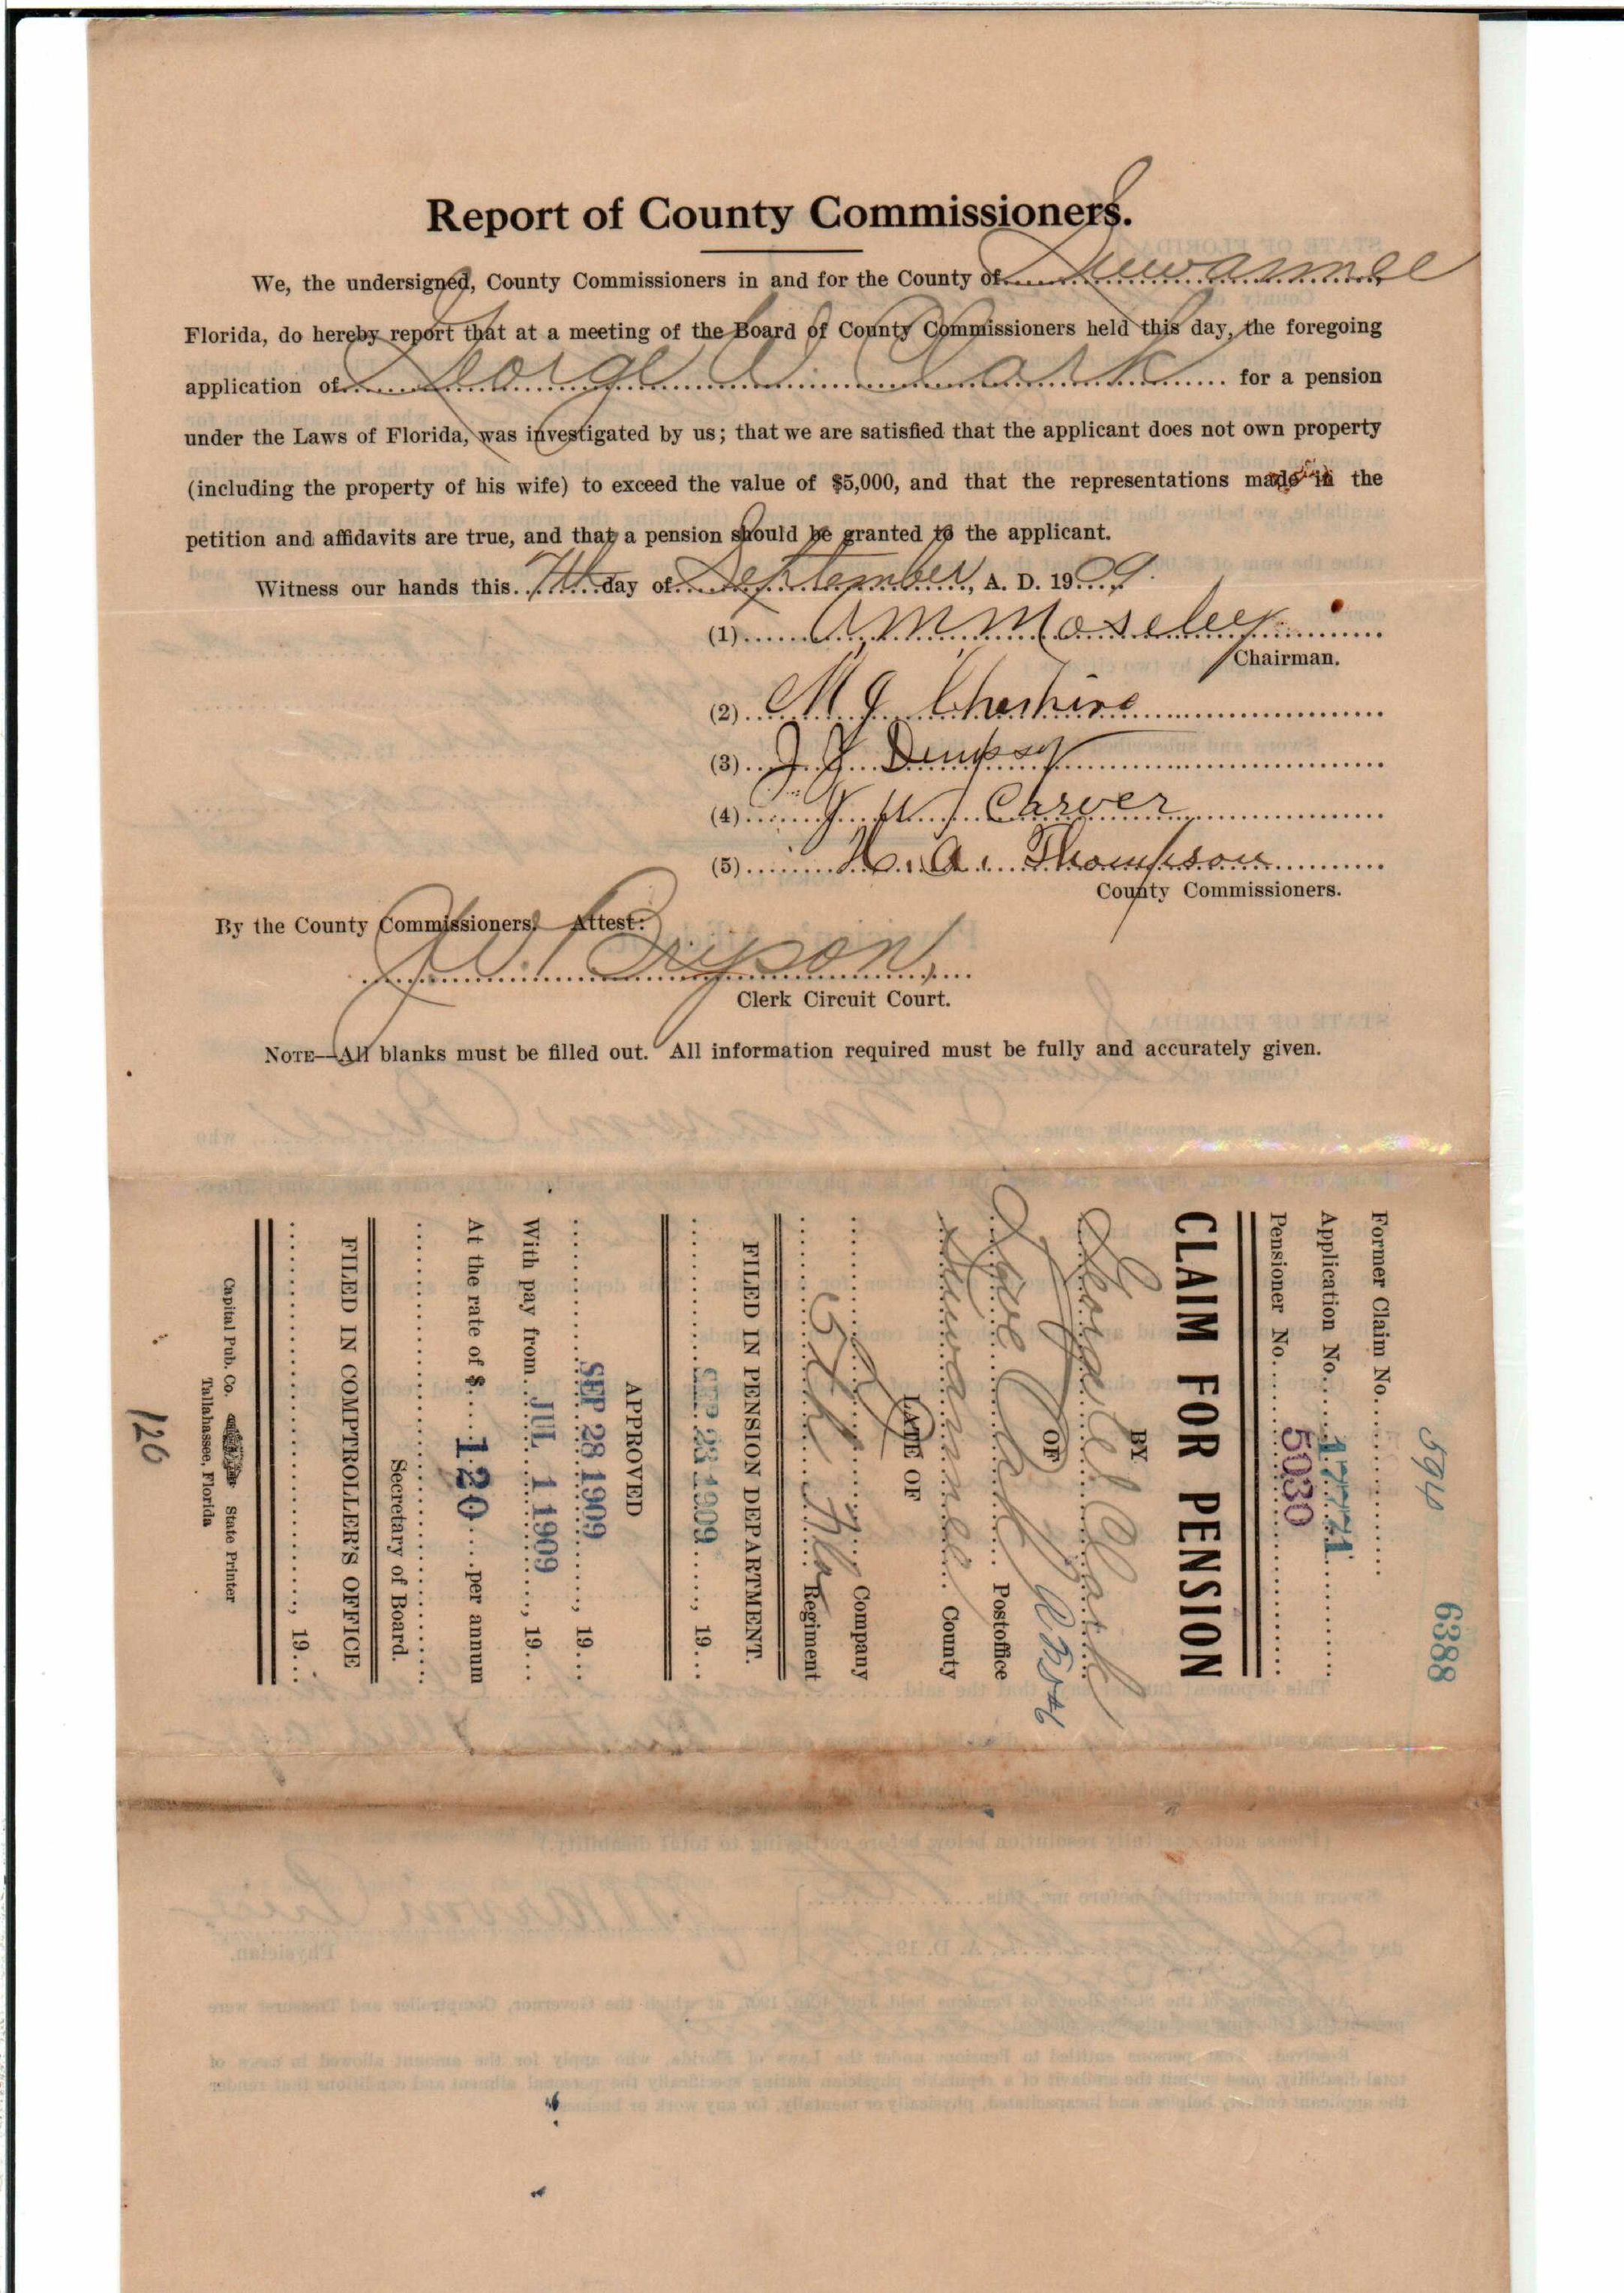 Report of County Commissioners.
We, the undersigned, County Commissioners in and for the County of Suwannee
Florida, do hereby report that at a meeting of the Board of County Commissioners held this day, the foregoing
application of George L. Clark for a pension
under the Laws of Florida, was investigated by us; that we are satisfied that the applicant does not own property
(including the property of his wife) to exceed the value of $5,000, and that the representations made in the
petition and affidavits are true, and that a pension should be granted to the applicant.
Witness our hands this 7th day of September, A. D. 1909.
(1) Moseley
Chairman.
(2) M J Cheshire
(3) J J Dempsy
(4) J W Carver
(5) H. A. Thompson
County Commissioners.
By the County Commissioners, Attest:
J W. Bryson,
Clerk Circuit Court.
NOTE—All blanks must be filled out. All information required must be fully and accurately given.
6388
Former Claim No.
Application No. 17771
Pensioner No. 5030
CLAIM FOR PENSION
BY
George L Clark
OF
Postoffice
Suwannee County
LATE OF
Company
5th Fla Regiment
FILED IN PENSION DEPARTMENT.
SEP 23 1909, 19
APPROVED
SEP 28 1909, 19
With pay from JUL 1 1909, 19
At the rate of $ 120 per annum
Secretary of Board.
FILED IN COMPTROLLER'S OFFICE
, 19
Capital Pub. Co. State Printer
Tallahassee, Florida
120